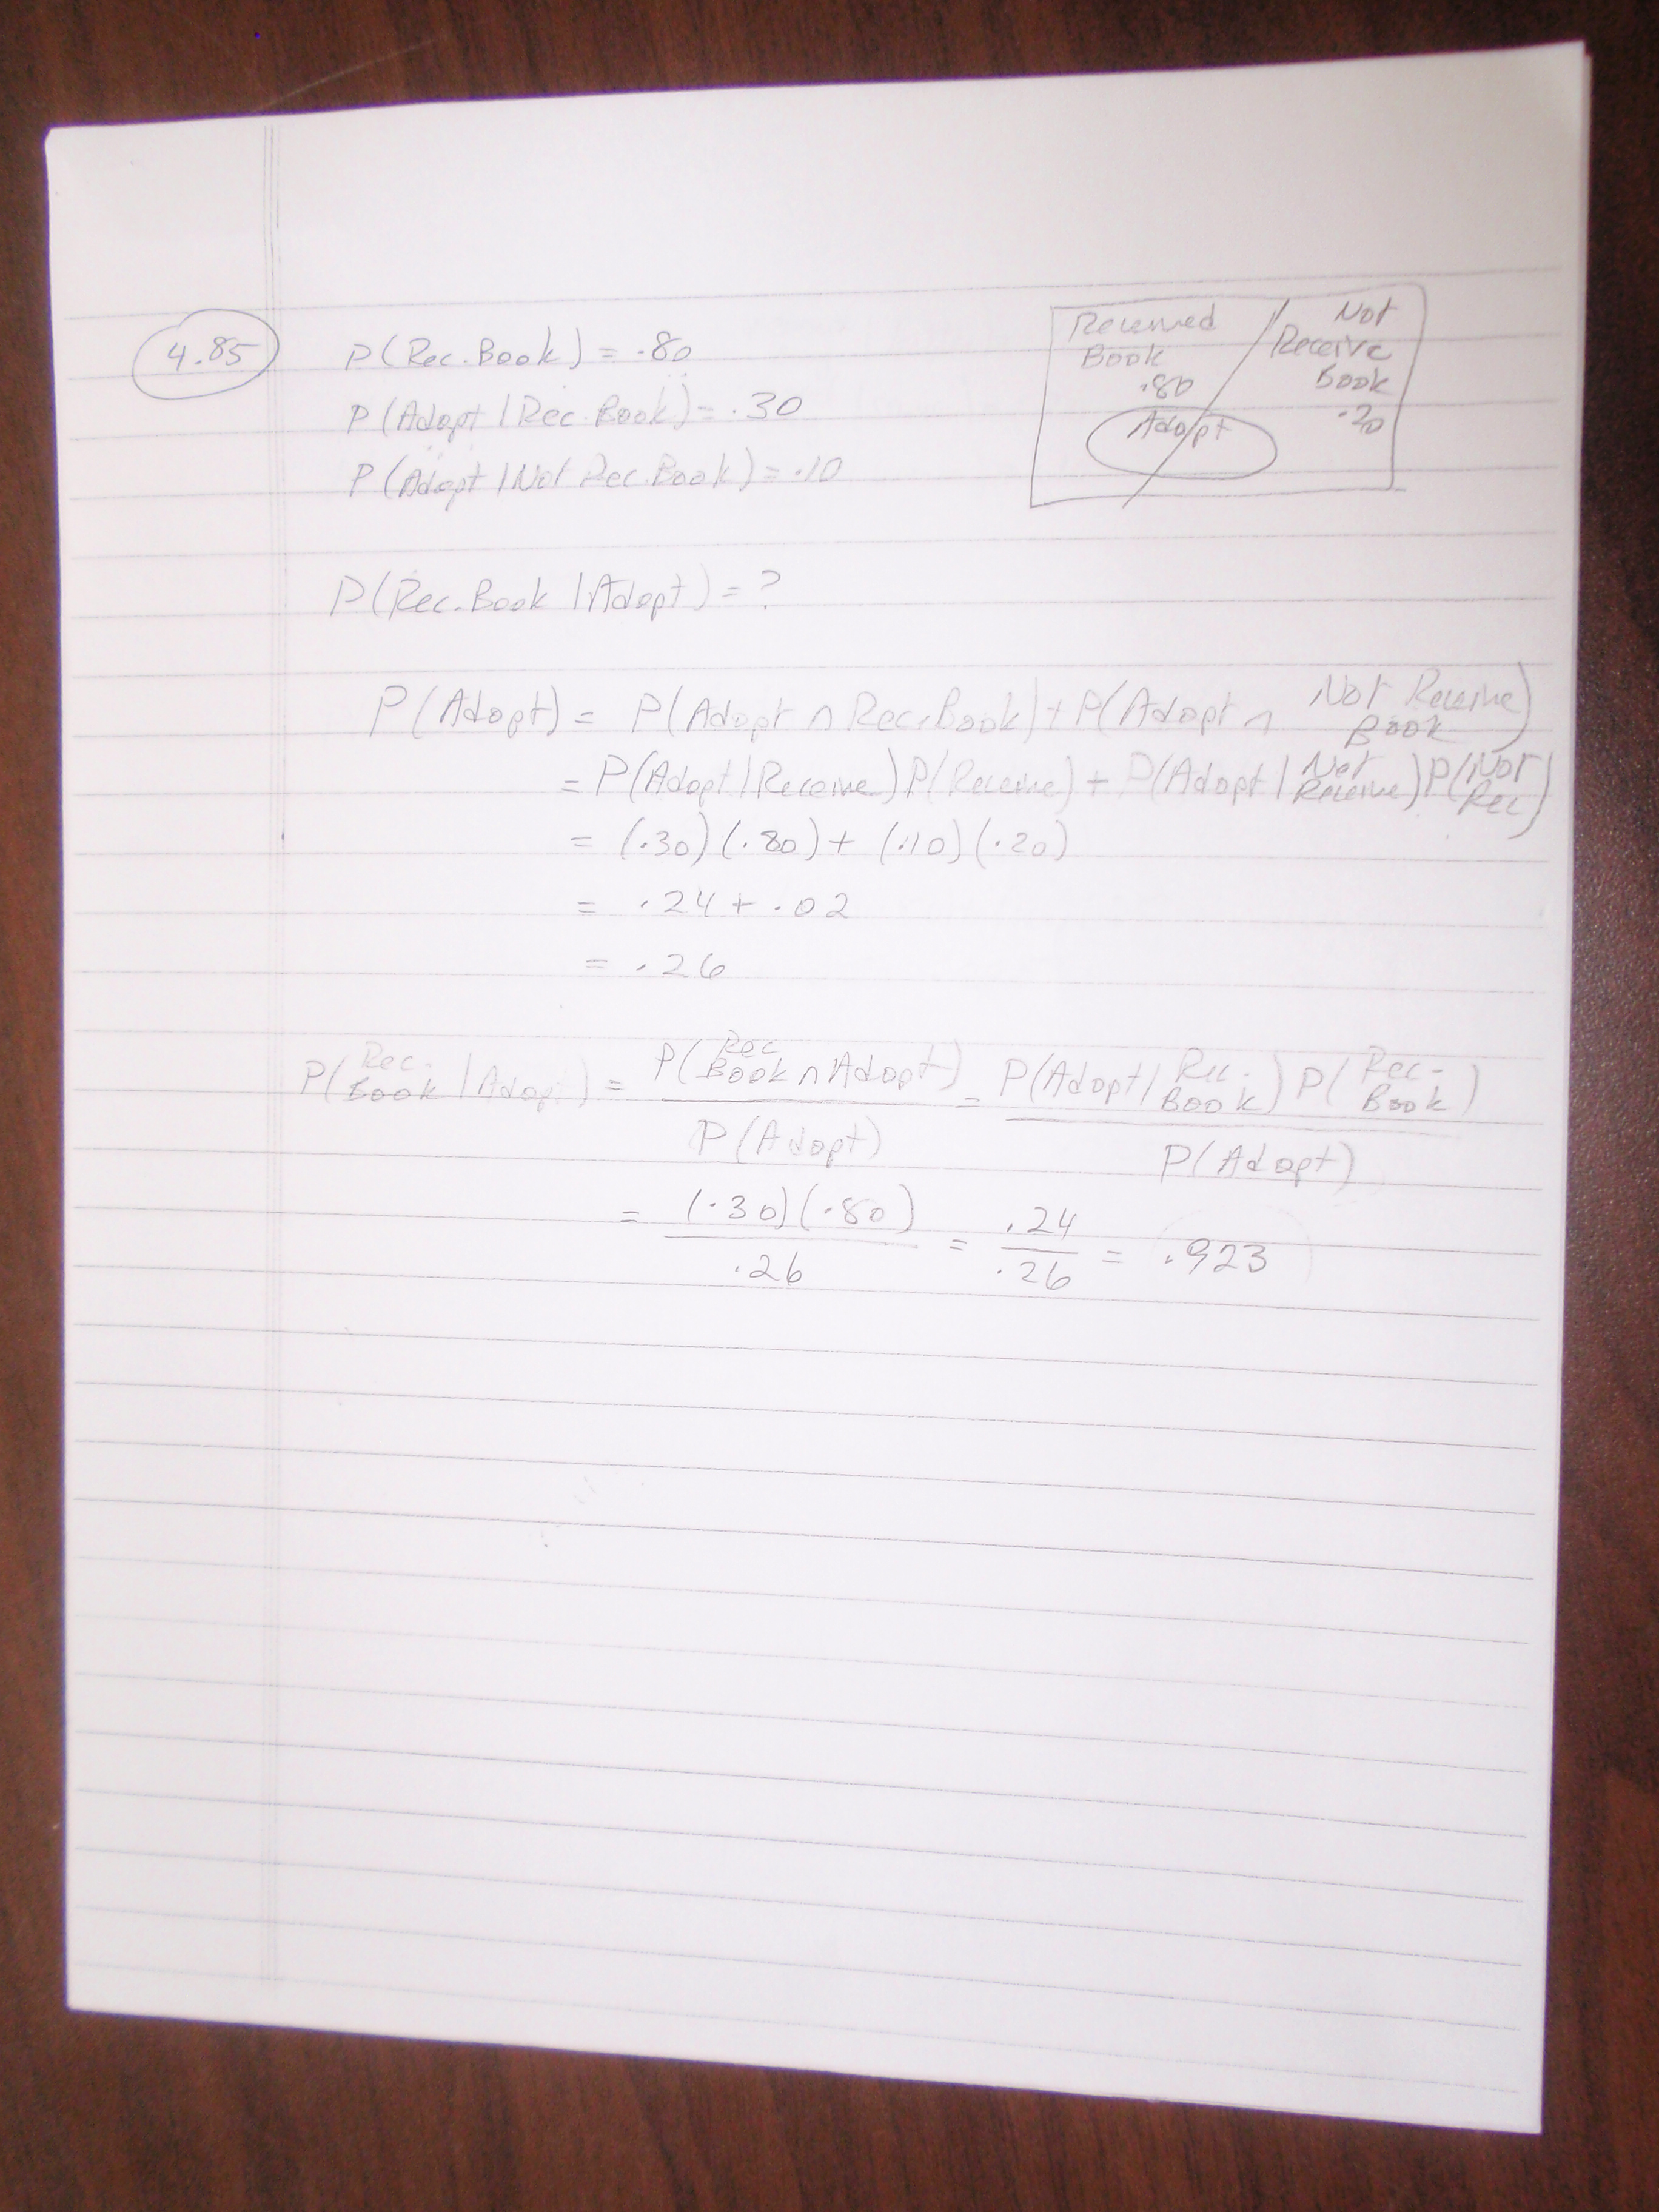 4.85
P(Rec. Book) = .80
P(Adopt | Rec. Book) = .30
P(Adopt | Not Rec. Book) = .10
Received Book .80
Not Receive Book .20
Adopt
P(Rec. Book | Adopt) = ?
P(Adopt) = P(Adopt ∩ Rec. Book) + P(Adopt ∩ Not Receive Book)
= P(Adopt | Receive) P(Receive) + P(Adopt | Not Receive) P(Not Rec)
= (.30)(.80) + (.10)(.20)
= .24 + .02
= .26
P(Rec. Book | Adopt) = P(Rec Book ∩ Adopt) / P(Adopt) = P(Adopt | Rec. Book) P(Rec. Book) / P(Adopt)
= (.30)(.80) / .26 = .24 / .26 = .923